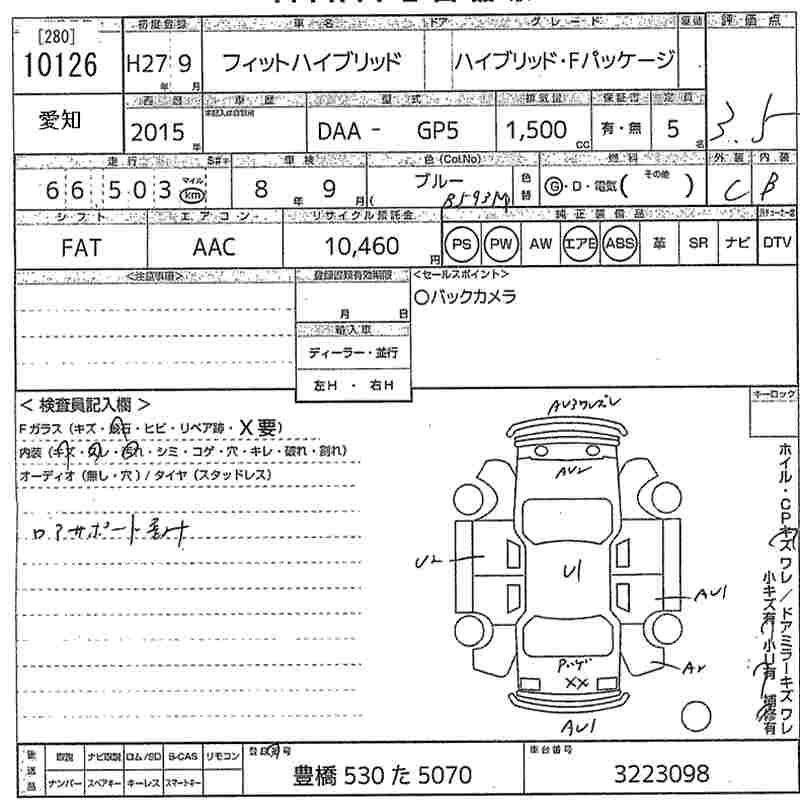 [280]
10126
初度登録 車名 ドア グレード 評価点
H27 9 フィットハイブリッド ハイブリッド・Fパッケージ 3.5
年 月
愛知
車歴 型式 排気量 保証書 定員
2015年 DAA - GP5 1,500cc 有・無 5名
走行 車検 色(Col.No) 燃料 外装 内装
66503 マイル km 8年 9月 ブルー B593M 色替 G・D・電気( その他 ) C B
シフト エアコン リサイクル預託金 純正装備品
FAT AAC 10,460円 PS PW AW エアB ABS 革 SR ナビ DTV
<注意事項> 登録書類有効期限 <セールスポイント>
月 日 〇バックカメラ
輸入車
ディーラー・並行
左H ・ 右H
キーロック
< 検査員記入欄 >
Fガラス(キズ・飛石・ヒビ・リペア跡・X要)
内装(キズ・スレ・汚れ・シミ・コゲ・穴・キレ・破れ・割れ)
オーディオ(無し・穴)/タイヤ(スタッドレス)
ロアサポート
AU2
U2
U1
AU1
XX
AU1
ホイル・CPキズ ワレ/ドアミラーキズ ワレ
小キズ有 小U有 補修有
後送品 取説 ナビ取説 ロム/SD B-CAS リモコン 登録番号 車台番号
ナンバー スペアキー キーレス スマートキー 豊橋 530 た 5070 3223098